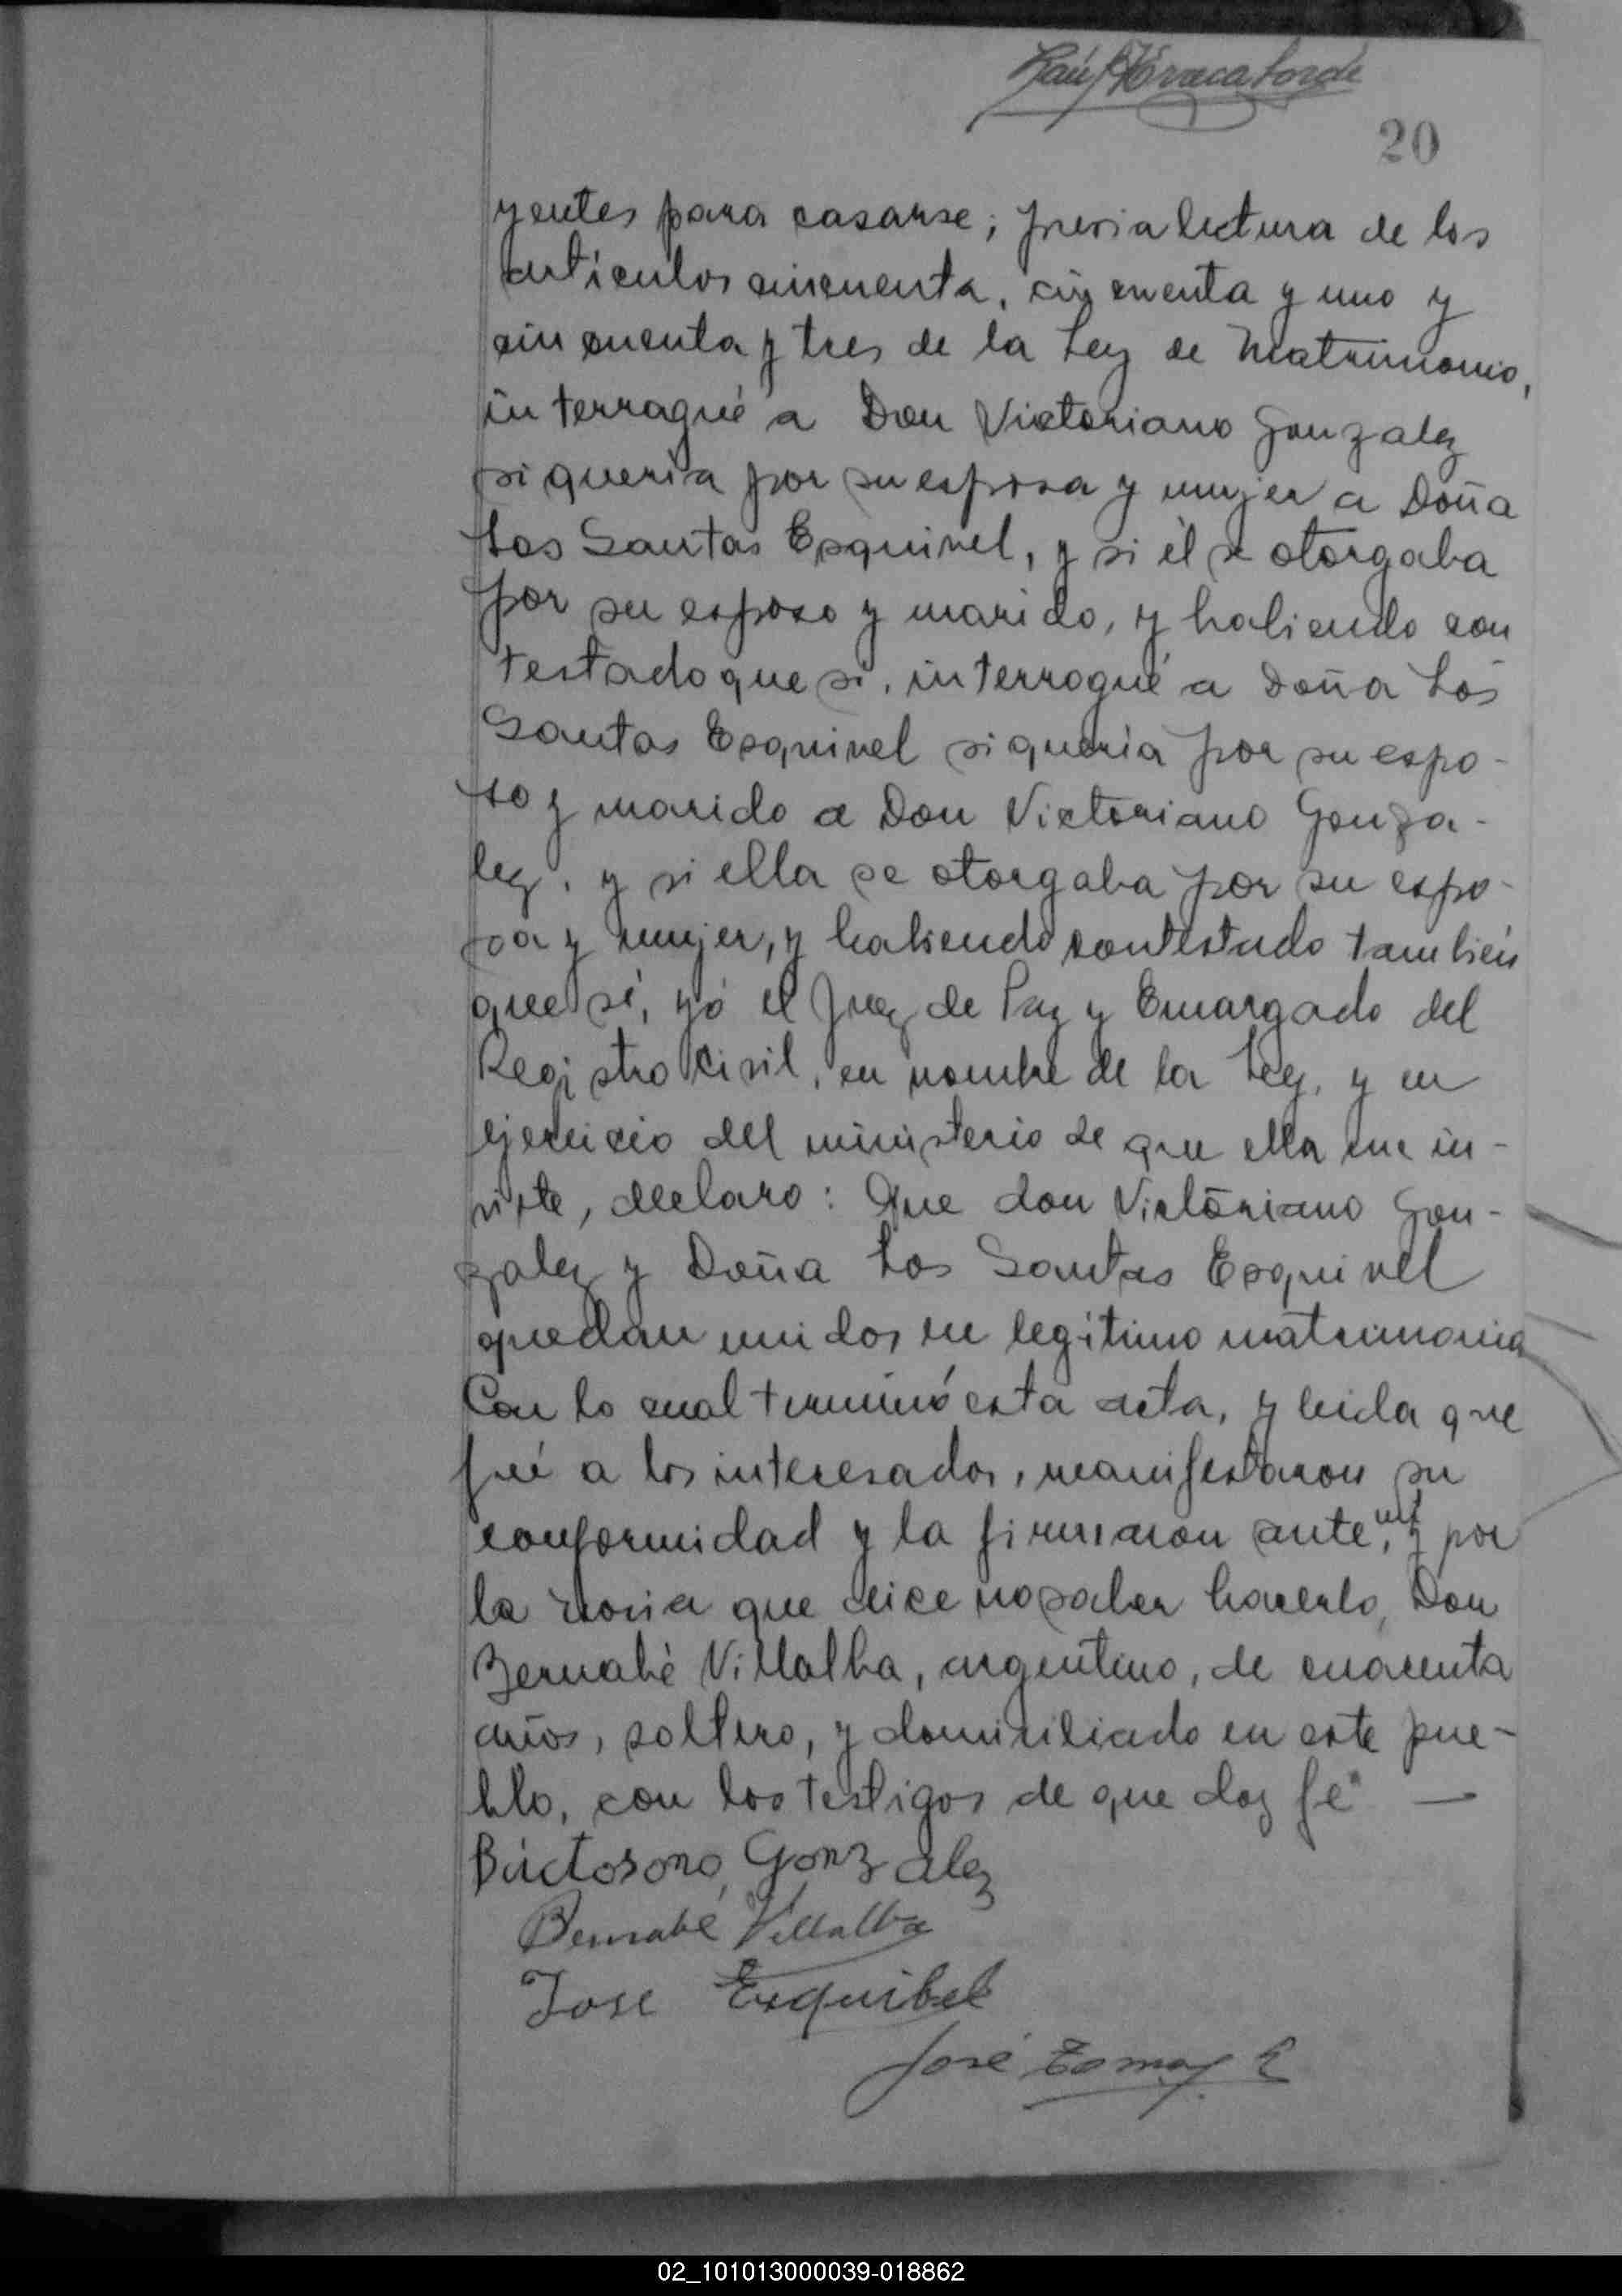 20
yentes para casarse; previa lectura de los
artículos cincuenta, cincuenta y uno y
cincuenta y tres de la Ley de Matrimonio,
interragué a Don Victoriano Gonzalez
si queria por su esposa y mujer a Doña
Los Santos Esquivel, y si él se otorgaba
por su esposo y marido, y habiendo con
testado que si, interrogué a Doña Los
Santos Esquivel si queria por su espo-
so y marido a Don Victoriano Gonza-
lez, y si ella se otorgaba por su espo-
sa y mujer, y habiendo contestado también
que sí, yó el Juez de Paz y Encargado del
Registro Civil, en nombre de la Ley, y en
ejercicio del ministerio de que ella me in-
viste, declaro: Que don Victoriano Gon-
zalez y Doña Los Santos Esquivel
quedan unidos en legítimo matrimonio
Con lo cual terminó esta acta, y leida que
fué a los interesados, manifestaron su
conformidad y la firmaron ante mí, y por
la novia que dice no saber hacerlo, Don
Bernabé Villalba, argentino, de cuarenta
años, soltero, y domiciliado en este pue-
blo, con los testigos de que doy fé —
Búctosono Gonzalez
Bernabé Villalba
Jose Esquibel
José
02_101013000039-018862